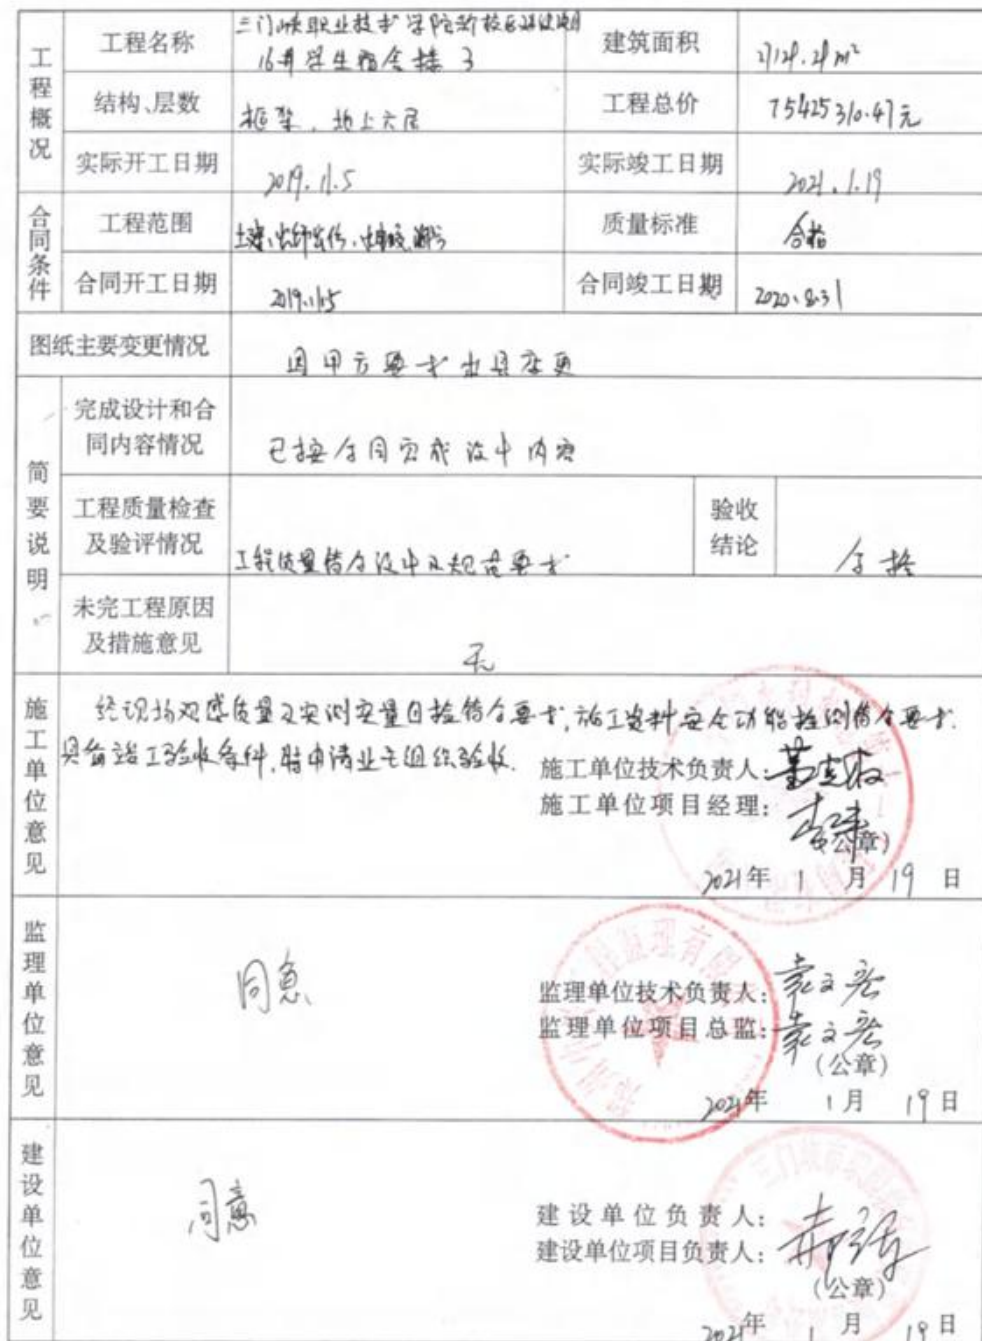 工程概况
工程名称
三门峡职业技术学院新校区建设项目
16#学生宿舍楼3
建筑面积
结构、层数
框架,地上六层
工程总价
75425310.47元
实际开工日期
2019.11.5
实际竣工日期
2021.1.19
合同条件
工程范围
质量标准
合格
合同开工日期
2019.11.5
合同竣工日期
2020.8.31
图纸主要变更情况
因甲方要求出具变更
简要说明
完成设计和合
同内容情况
已按合同完成设计内容
工程质量检查
及验评情况
工程质量符合设计及规范要求
验收
结论
合格
未完工程原因
及措施意见
无
施工单位意见
经现场观感质量及实测实量自检符合要求,施工资料安全功能检测符合要求.
具备竣工验收条件,特申请业主组织验收.
施工单位技术负责人:
施工单位项目经理:
(公章)
2021年 1 月 19 日
监理单位意见
同意
监理单位技术负责人: 袁文宏
监理单位项目总监: 袁文宏
(公章)
2021年 1月 19日
建设单位意见
同意
建设单位负责人:
建设单位项目负责人:
(公章)
2021年 1 月 19日